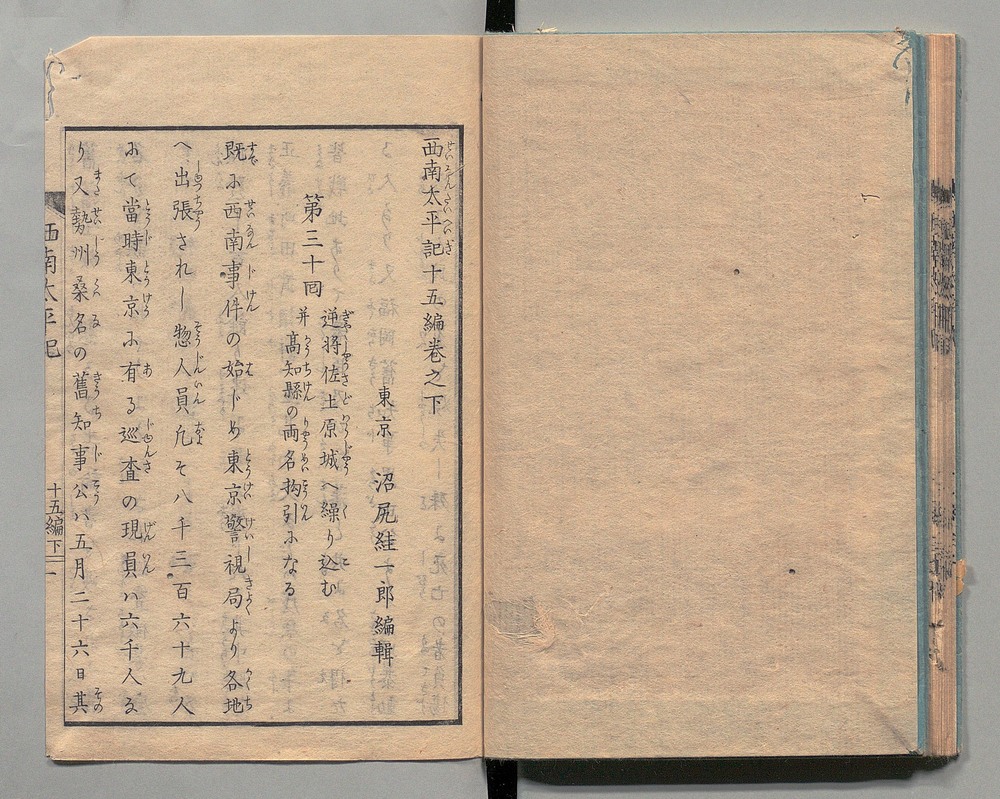 西南太平記十五編巻之下
東京 沼尻絓一郎編輯
第三十回
逆将佐土原城へ繰り込む
并高知縣の両名拘引ふなる
既ふ西南事件の始じめ東京警視局より各地
へ出張されし惣人員凢そ八千三百六十九人
ふて當時東京ふ有る巡査の現員ハ六千人な
り又勢州桑名の舊知事公ハ五月二十六日其
西南太平記
十五編下
一